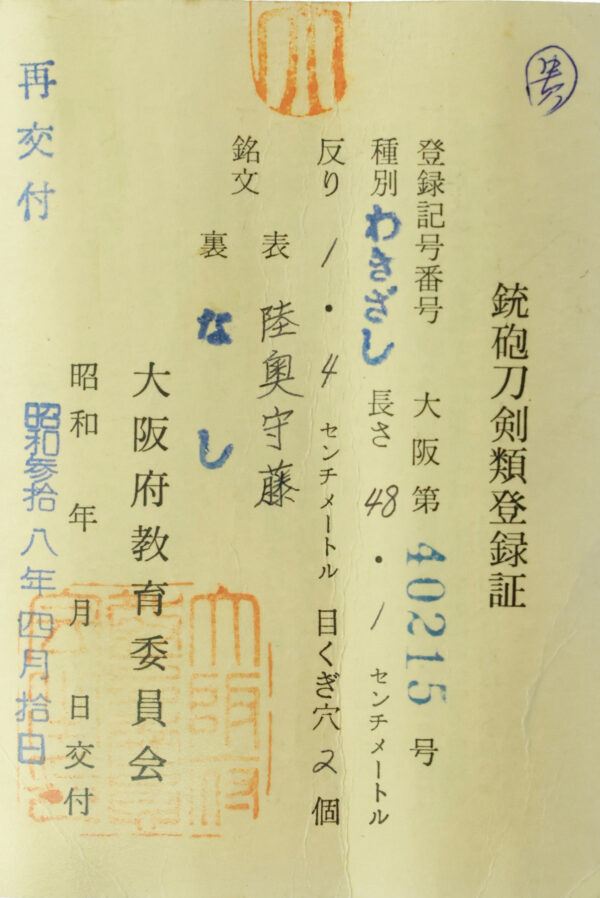 銃砲刀剣類登録証
登録記号番号 大阪第 40215 号
種別 わきざし 長さ 48・1 センチメートル
反り 1・4 センチメートル 目くぎ穴 2 個
銘文 表 陸奥守藤
裏 なし
大阪府教育委員会
昭和 年 月 日交付
昭和参拾八年四月拾日
再交付